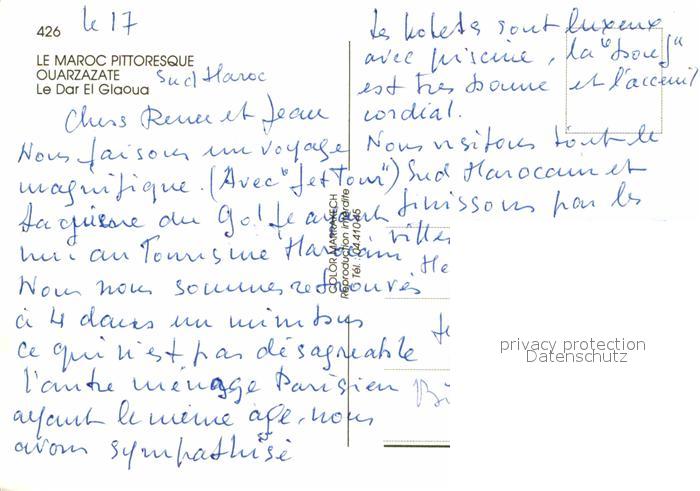 le 17
426
LE MAROC PITTORESQUE
OUARZAZATE
Le Dar El Glaoua
Sud Maroc
Chers Renee et Jean
Nous faisons un voyage
magnifique. (Avec "Jet Tour")
du Golfe
au Tourisme Marocain
Nous nous sommes retrouvés
à 4 dans un minibus
ce qui n'est pas désagréable
l'autre ménage Parisien
ayant le même age, nous
avons sympathisé
COLOR MARRAKECH
Reproduction interdite
Tél. : 04.410-45
Les hotels sont luxueux
avec piscine, la "bouf"
est très bonne et l'acceuil
cordial.
Nous visitons tout le
Sud Marocain et
finissons par les
villes
privacy protection
Datenschutz